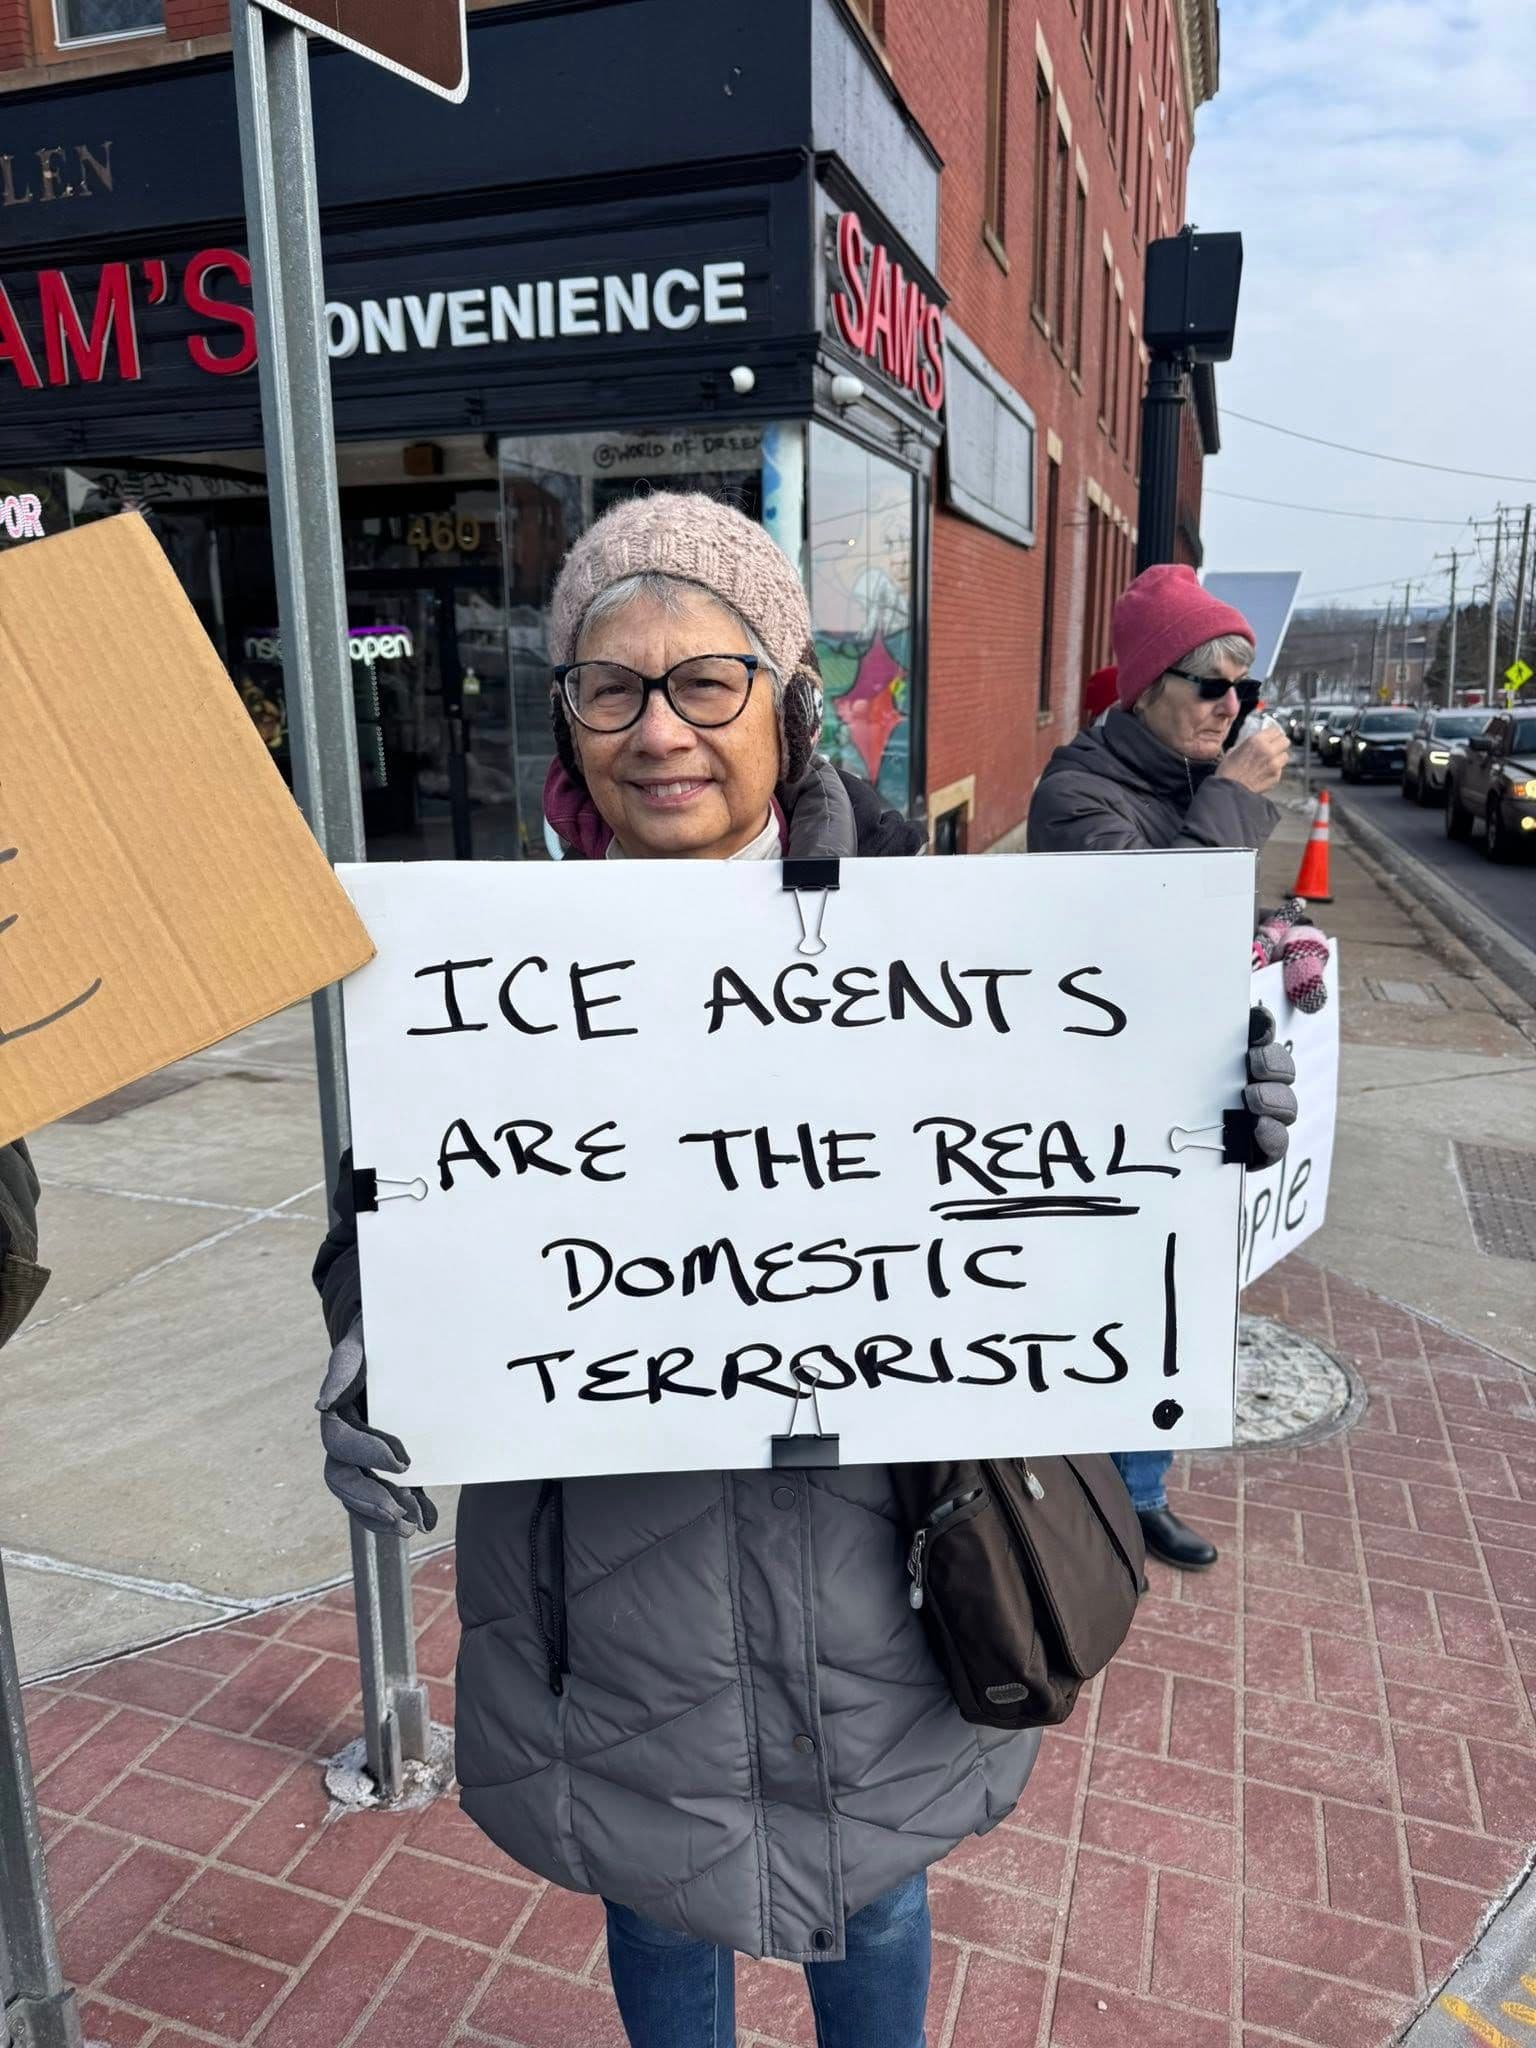 LEN
AM'S
ONVENIENCE
SAM'S
@WORLD OF DREEM
POR
460
open
ICE AGENTS
ARE THE REAL
DOMESTIC
TERRORISTS!
ople